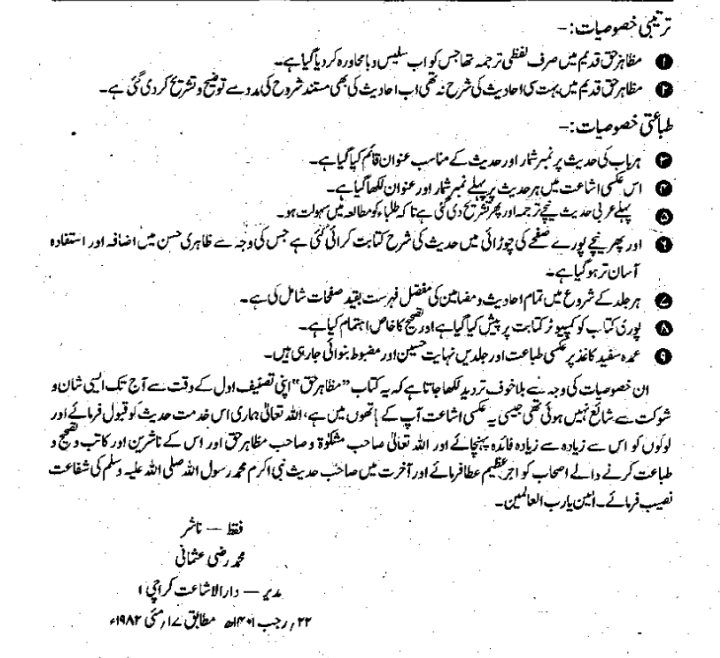 ترتیبی خصوصیات :–
۱ مظاہر حق قدیم میں صرف لفظی ترجمہ تھا جس کو اب سلیس و با محاورہ کر دیا گیا ہے۔
۲ مظاہر حق قدیم میں بہت سی احادیث کی شرح نہ تھی اب احادیث کی بھی مستند شروح کی مدد سے توضیح و تشریح کر دی گئی ہے۔
طباعتی خصوصیات :–
۳ ہر باب کی حدیث پر نمبر شمار اور حدیث کے مناسب عنوان قائم کیا گیا ہے۔
۴ اس عکسی اشاعت میں ہر حدیث پر پہلے نمبر شمار اور عنوان لکھا گیا ہے۔
۵ پہلے عربی حدیث نیچے ترجمہ اور پھر تشریح دی گئی ہے تاکہ طلباء کو مطالعہ میں سہولت ہو۔
۶ اور پھر نیچے پورے صفحے کی چوڑائی میں حدیث کی شرح کتابت کرائی گئی ہے جس کی وجہ سے ظاہری حسن میں اضافہ اور استفادہ
آسان تر ہو گیا ہے۔
۷ ہر جلد کے شروع میں تمام احادیث و مضامین کی مفصل فہرست بقید صفحات شامل کی ہے۔
۸ پوری کتاب کو کمپیوٹر کتابت پر پیش کیا گیا ہے اور تصحیح کا خاص اہتمام کیا ہے۔
۹ عمدہ سفید کاغذ پر عکسی طباعت اور جلدیں نہایت حسین اور مضبوط بنوائی جا رہی ہیں۔
ان خصوصیات کی وجہ سے بلا خوف تردید لکھا جاتا ہے کہ یہ کتاب "مظاہر حق" اپنی تصنیف اول کے وقت سے آج تک ایسی شان و
شوکت سے شائع نہیں ہوئی تھی جیسی یہ عکسی اشاعت آپ کے ہاتھوں میں ہے، اللہ تعالیٰ ہماری اس خدمت حدیث کو قبول فرمائے اور
لوگوں کو اس سے زیادہ سے زیادہ فائدہ پہنچائے اور اللہ تعالیٰ صاحب مشکوٰۃ و صاحب مظاہر حق اور اس کے ناشرین اور کاتب و تصحیح و
طباعت کرنے والے اصحاب کو اجر عظیم عطا فرمائے اور آخرت میں صاحب حدیث نبی اکرم محمد رسول اللہ صلی اللہ علیہ وسلم کی شفاعت
نصیب فرمائے۔ آمین یا رب العالمین۔
فقط — ناشر
محمد رضی عثمانی
مدیر — دارالاشاعت کراچی ۱
۲۲؍ رجب ۱۴۰۱ھ مطابق ۱۷؍ مئی ۱۹۸۲ء